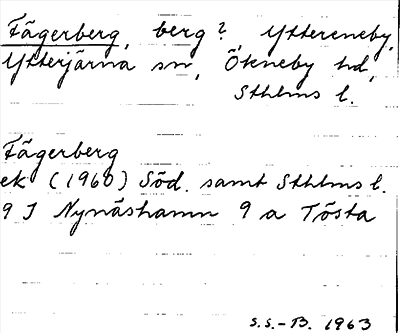 Fägerberg, berg?, Yttereneby,
Ytterjärna sn, Ökneby hd,
Sthlms l.
Fägerberg
ek (1960) Söd. samt Sthlms l.
9 J Nynäshamn 9 a Tösta
S.S.-B. 1963